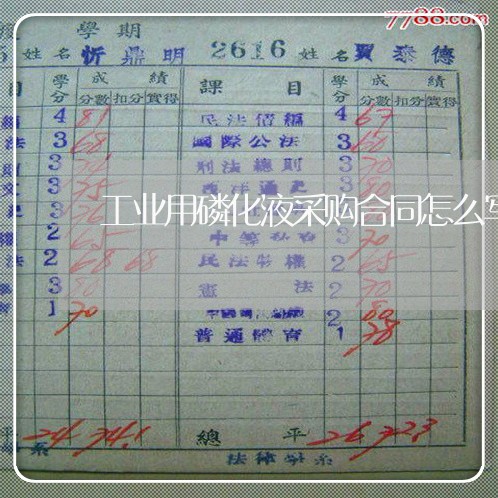 7788.com
學期
姓名 忻鼎明 2616 姓名 賈泰德
目 學分 成績 分數 扣分 實得 課目 學分 成績 分數 扣分 實得
4 81 民法債編 4 67
法 3 68 國際公法 3 60
3 刑法總則 3 70
文 3 75 西洋通史 3 80
工业用磷化液采购合同怎么写
3 76 3
2 65 3 70
法 2 68 68 民法物權 2 65
3 80 憲法 2 70
1 70 2 80
普通體育 1 78
平 24 74.1 總平 26 72.3
系 法律學系